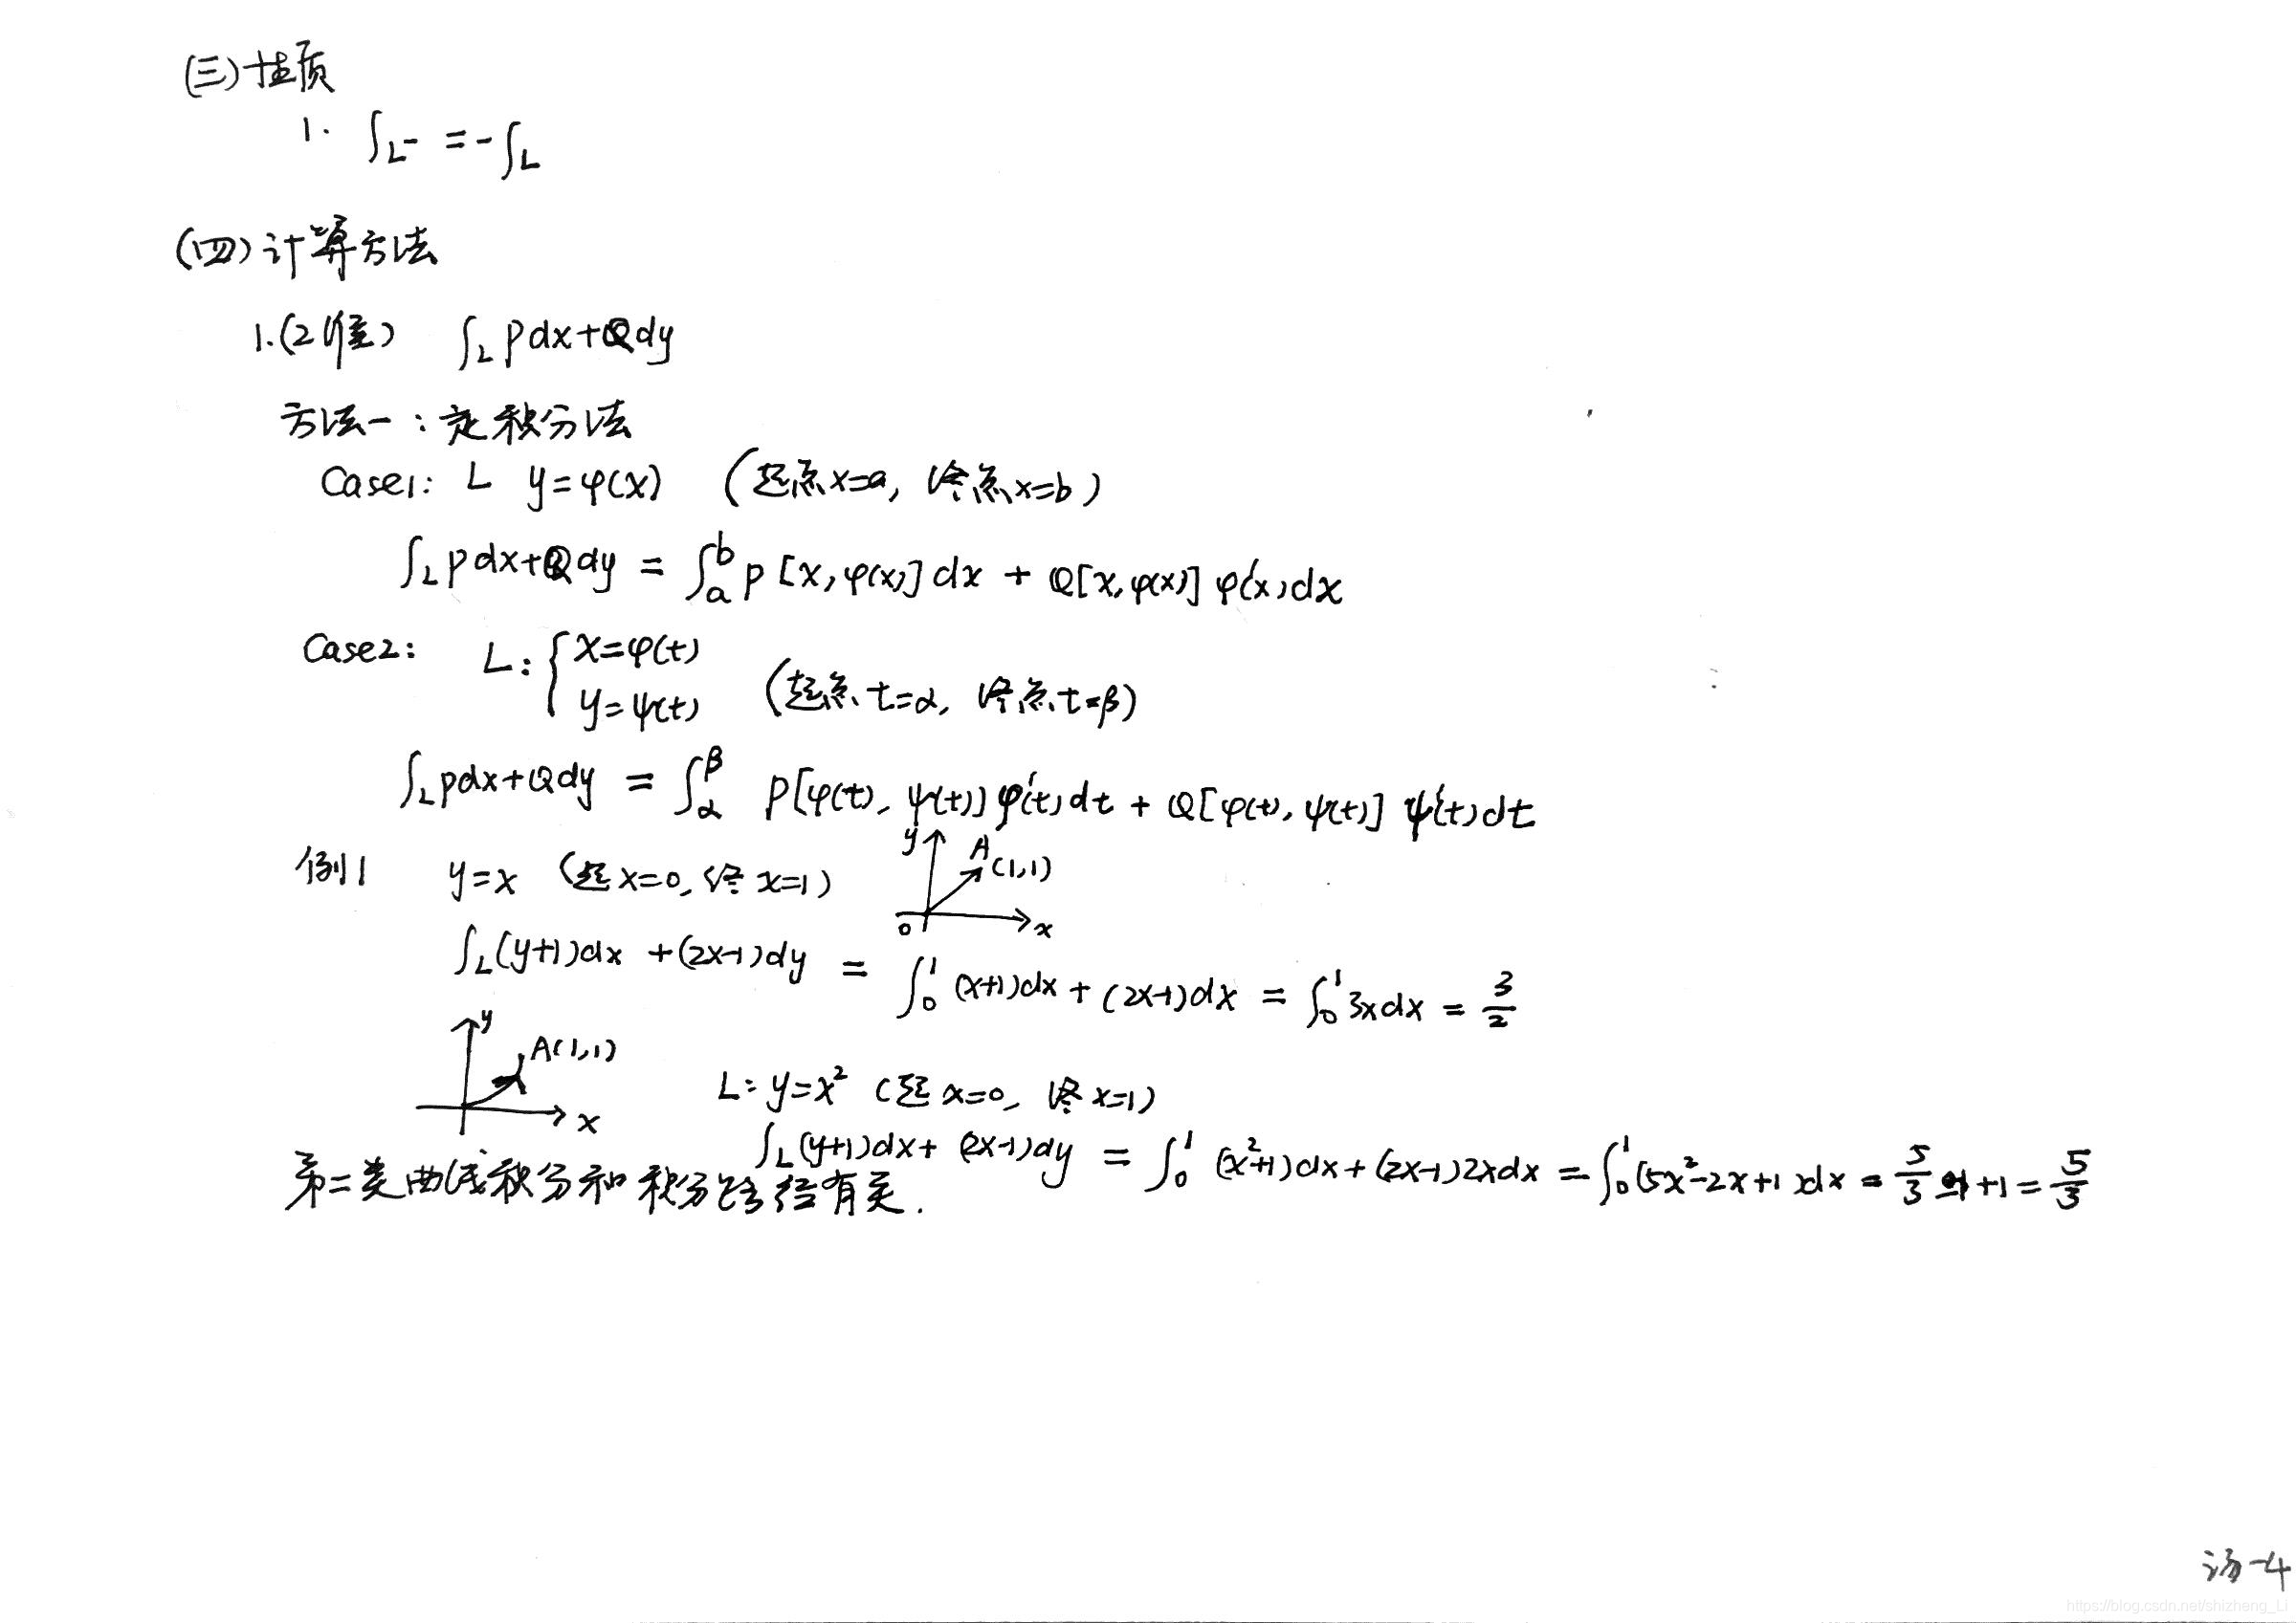 (三)性质
1. ∫_L⁻ = -∫_L
(四)计算方法
1.(2维) ∫_L Pdx+Qdy
方法一：定积分法
Case1: L y=φ(x) (起点x=a, 终点x=b)
∫_L Pdx+Qdy = ∫_a^b P[x,φ(x)]dx + Q[x,φ(x)]φ'(x)dx
Case2: L: { x=φ(t)
y=ψ(t) (起点t=α, 终点t=β)
∫_L Pdx+Qdy = ∫_α^β P[φ(t), ψ(t)]φ'(t)dt + Q[φ(t), ψ(t)]ψ'(t)dt
例1 y=x (起x=0, 终x=1) y A(1,1) 0 x
∫_L(y+1)dx +(2x-1)dy = ∫_0^1 (x+1)dx+(2x-1)dx = ∫_0^1 3xdx = 3/2
y A(1,1) x
L: y=x² (起x=0, 终x=1)
∫_L(y+1)dx+(2x-1)dy = ∫_0^1 (x²+1)dx+(2x-1)2xdx = ∫_0^1(5x²-2x+1)dx = 5/3-1+1 = 5/3
第二类曲线积分和积分路径有关.
汤-4
https://blog.csdn.net/shizheng_Li